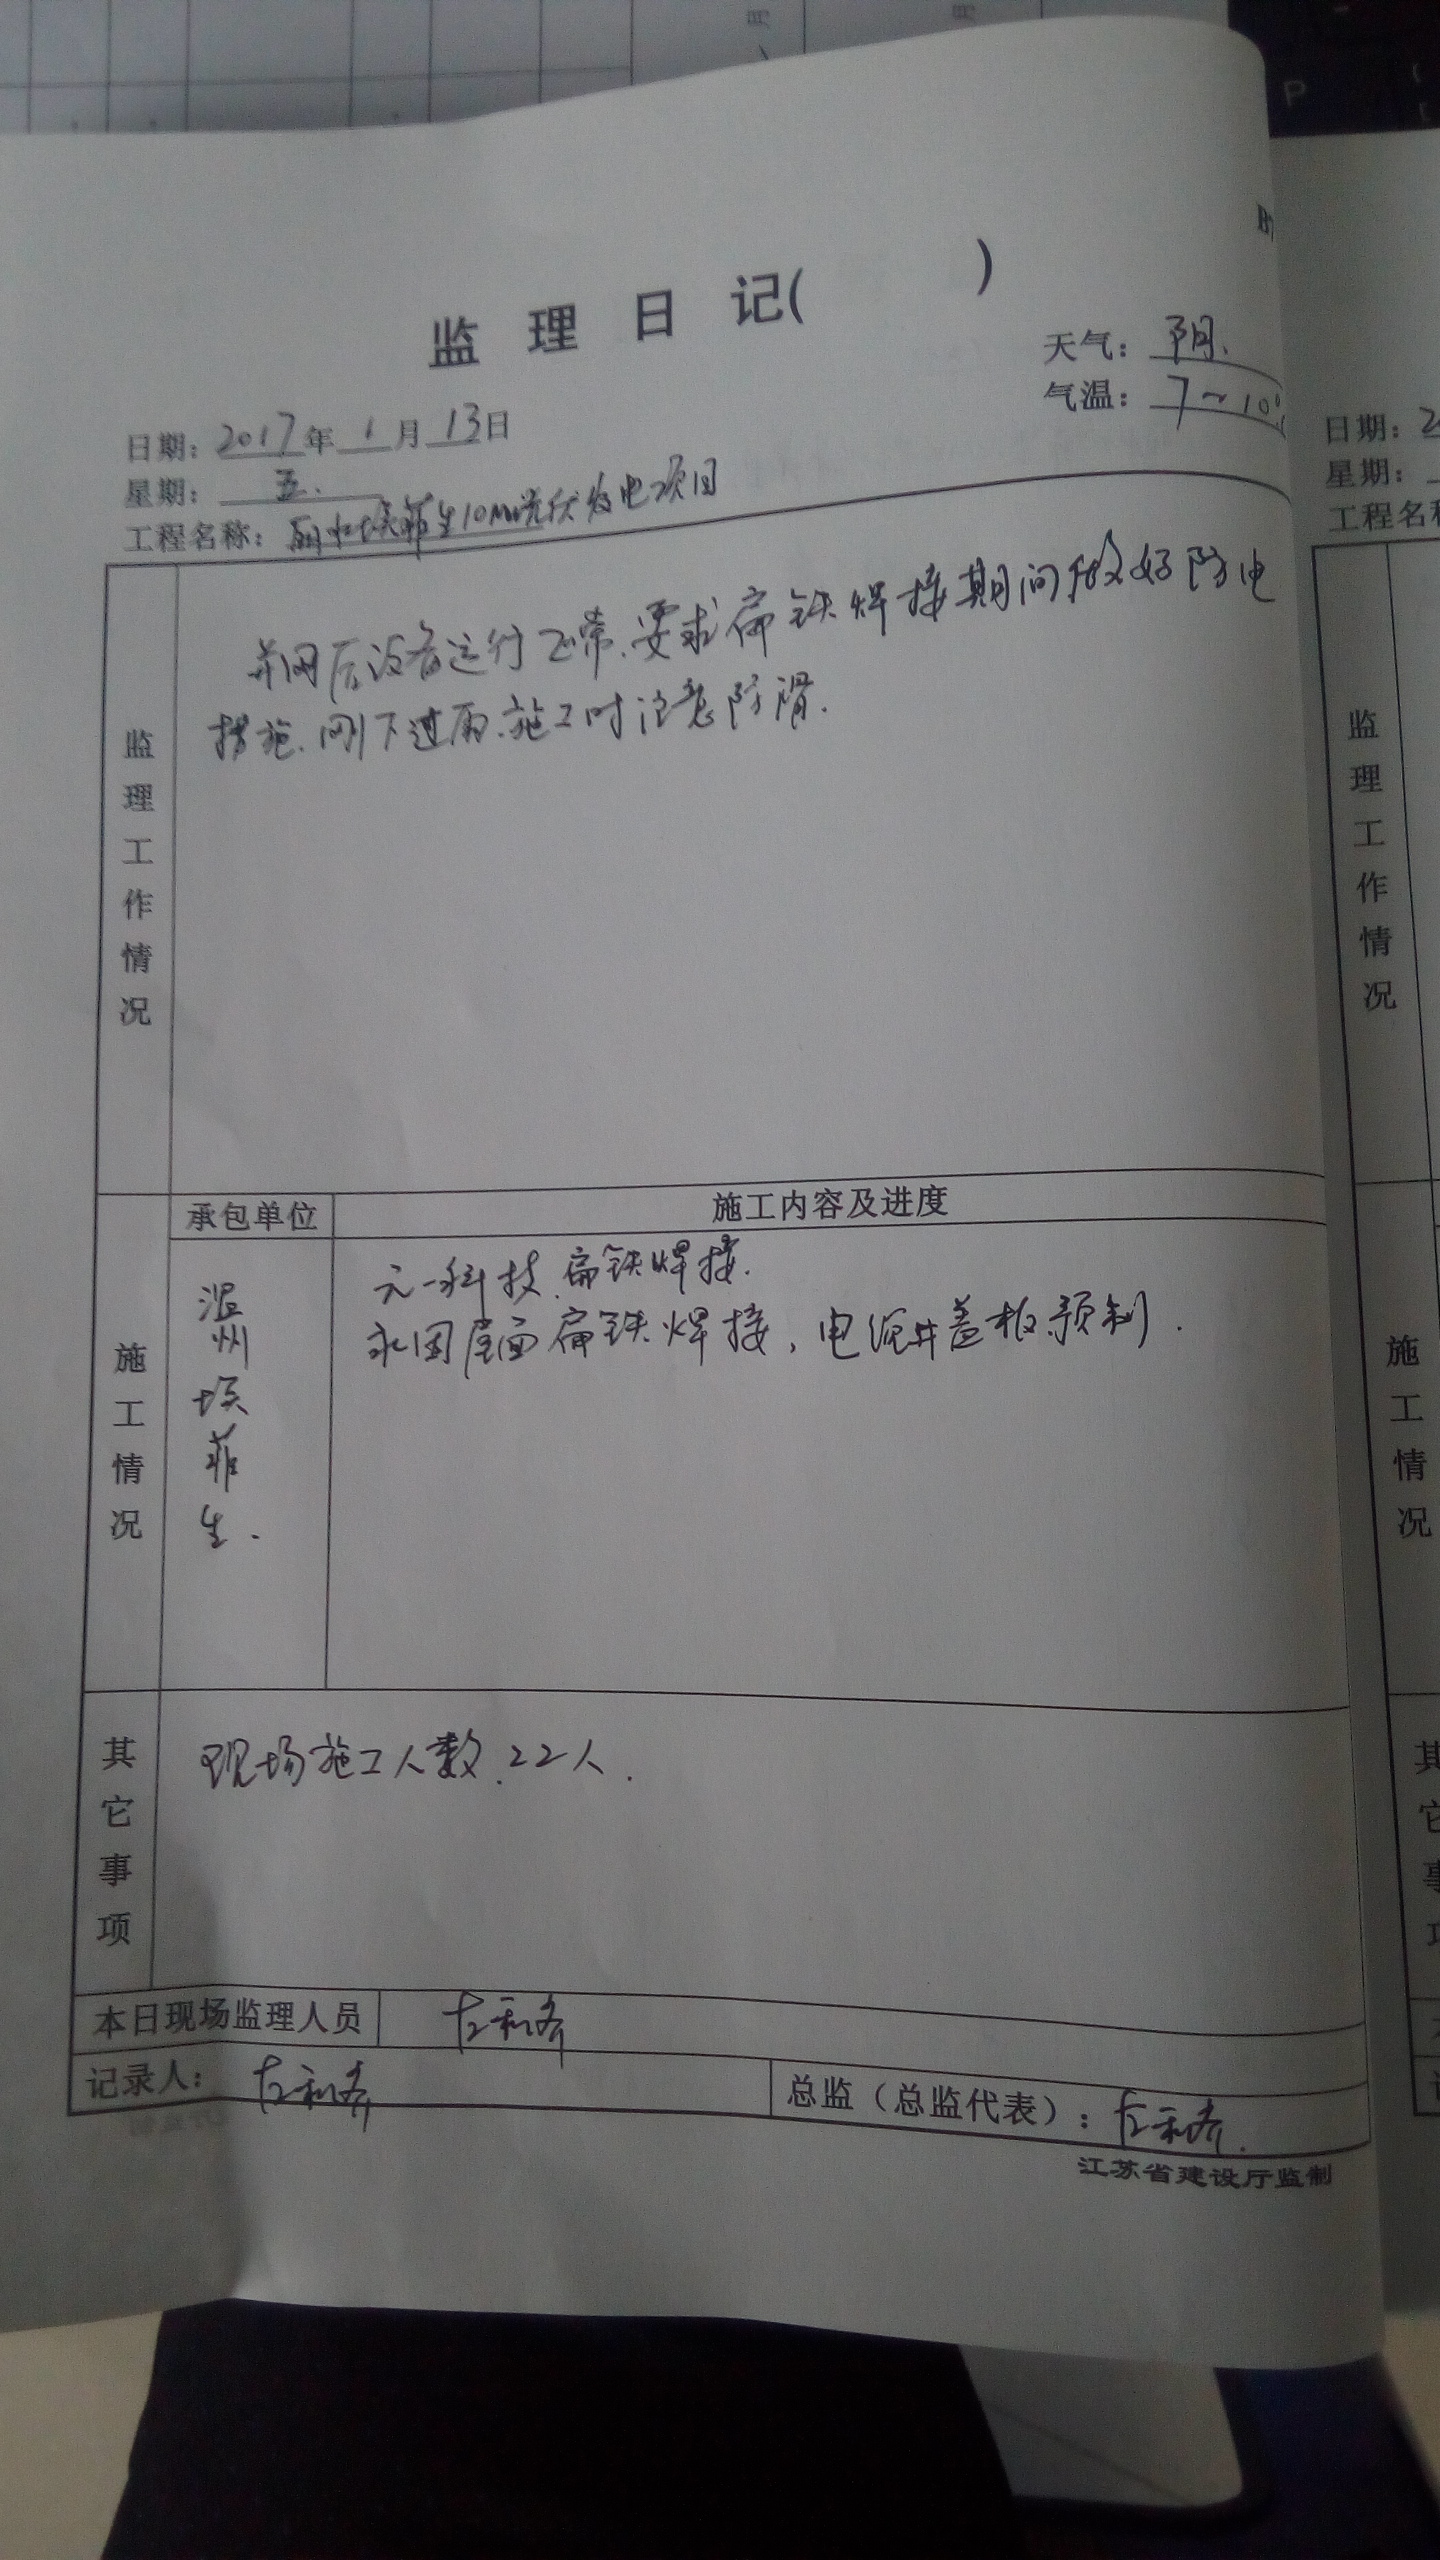 监理日记( )
天气：阴.
气温：7～10℃
日期：2017年1月13日
星期：五.
工程名称：丽水埃菲生10MW光伏发电项目
监理工作情况
并网后设备运行正常.要求扁铁焊接期间做好防电
措施.刚下过雨.施工时注意防滑.
施工情况
承包单位
施工内容及进度
温州埃菲生.
元一科技.扁铁焊接.
永固屋面扁铁焊接,电缆井盖板预制.
其它事项
现场施工人数.22人.
本日现场监理人员
记录人：
总监（总监代表）：
江苏省建设厅监制
日期：2
星期：
工程名
监理工作情况
施工情况